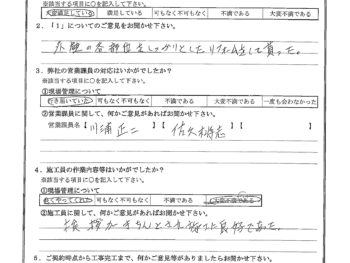 ※該当する項目に○を記入して下さい。
大変満足している 満足している 可もなく不可もなく 不満である 大変不満である
2．「1」についてのご意見をお聞かせ下さい。
外壁の各部位をしっかりとしたリフォームして貰った。
3．弊社の営業課員の対応はいかがでしたか？
※該当する項目に○を記入して下さい。
①現場管理について
行き届いていた 可もなく不可もなく 不満である 大変不満である 一度も会わなかった
②営業課員に関して、何かご意見があればお聞かせ下さい。
営業課員名【 川浦 正二 】【 佐久 】【
4．施工員の作業内容等はいかがでしたか？
※該当する項目に○を記入して下さい。
①現場管理について
良くやってくれた 可もなく不可もなく 不満である 大変不満である
②施工員に関して、何かご意見があればお聞かせ下さい。
挨拶がきちんとされ
5．ご契約時点から工事完工まで、何かご意見等がありましたらお聞かせ下さい。